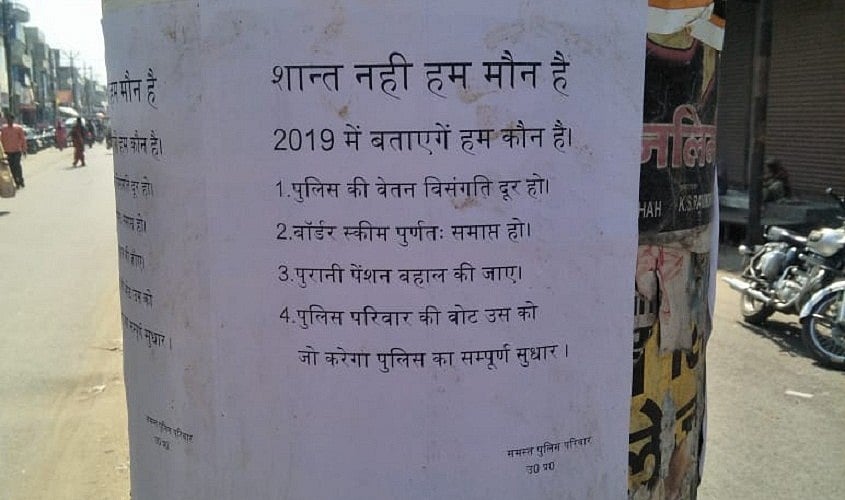 शान्त नही हम मौन है
2019 में बताएगें हम कौन है।
1.पुलिस की वेतन विसंगति दूर हो।
2.बॉर्डर स्कीम पुर्णतः समाप्त हो।
3.पुरानी पेंशन बहाल की जाए।
4.पुलिस परिवार की वोट उस को
जो करेगा पुलिस का सम्पूर्ण सुधार।
समस्त पुलिस परिवार
उ0 प्र0
हम मौन है
हम कौन है।
दूर हो।
हो।
जाए।
उस को
सम्पूर्ण सुधार।
समस्त पुलिस परिवार
उ0 प्र0
HAH